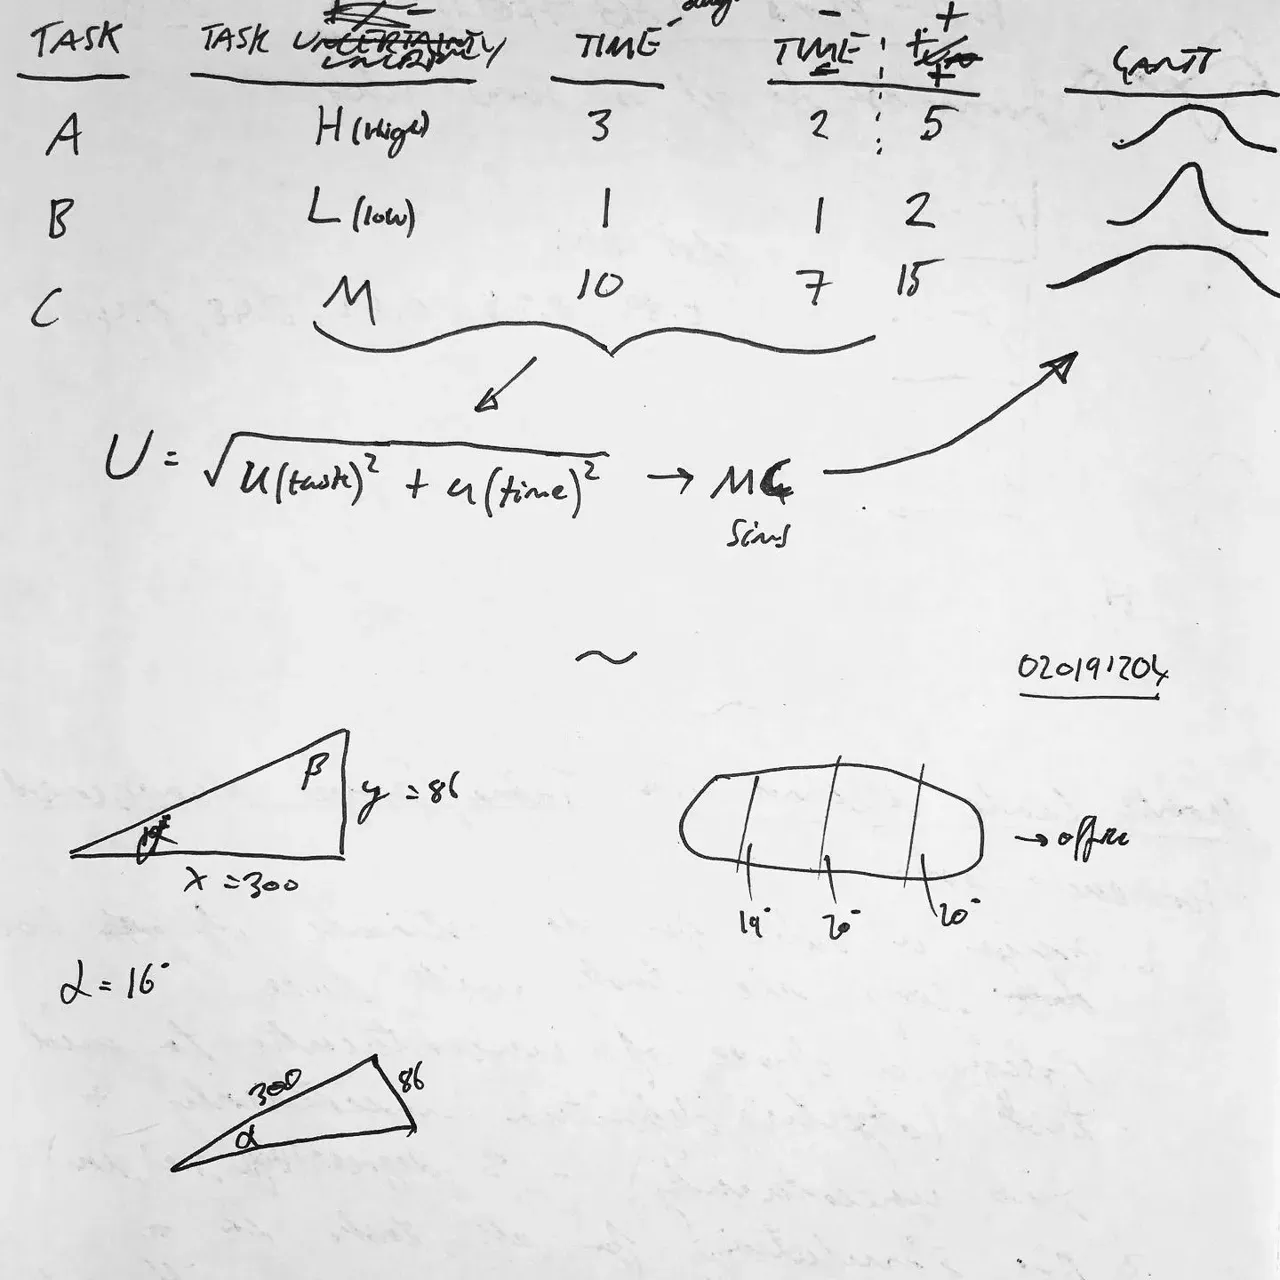 TASK TASK UNCERTAINTY TIME TIME - + GANTT
A H (High) 3 2 5
B L (low) 1 1 2
C M 10 7 15
U = √u(task)² + u(time)² → MC
Sims
~
020191204
β y = 86
x = 300
→ office
19° 20° 20°
α = 16°
300 86
α